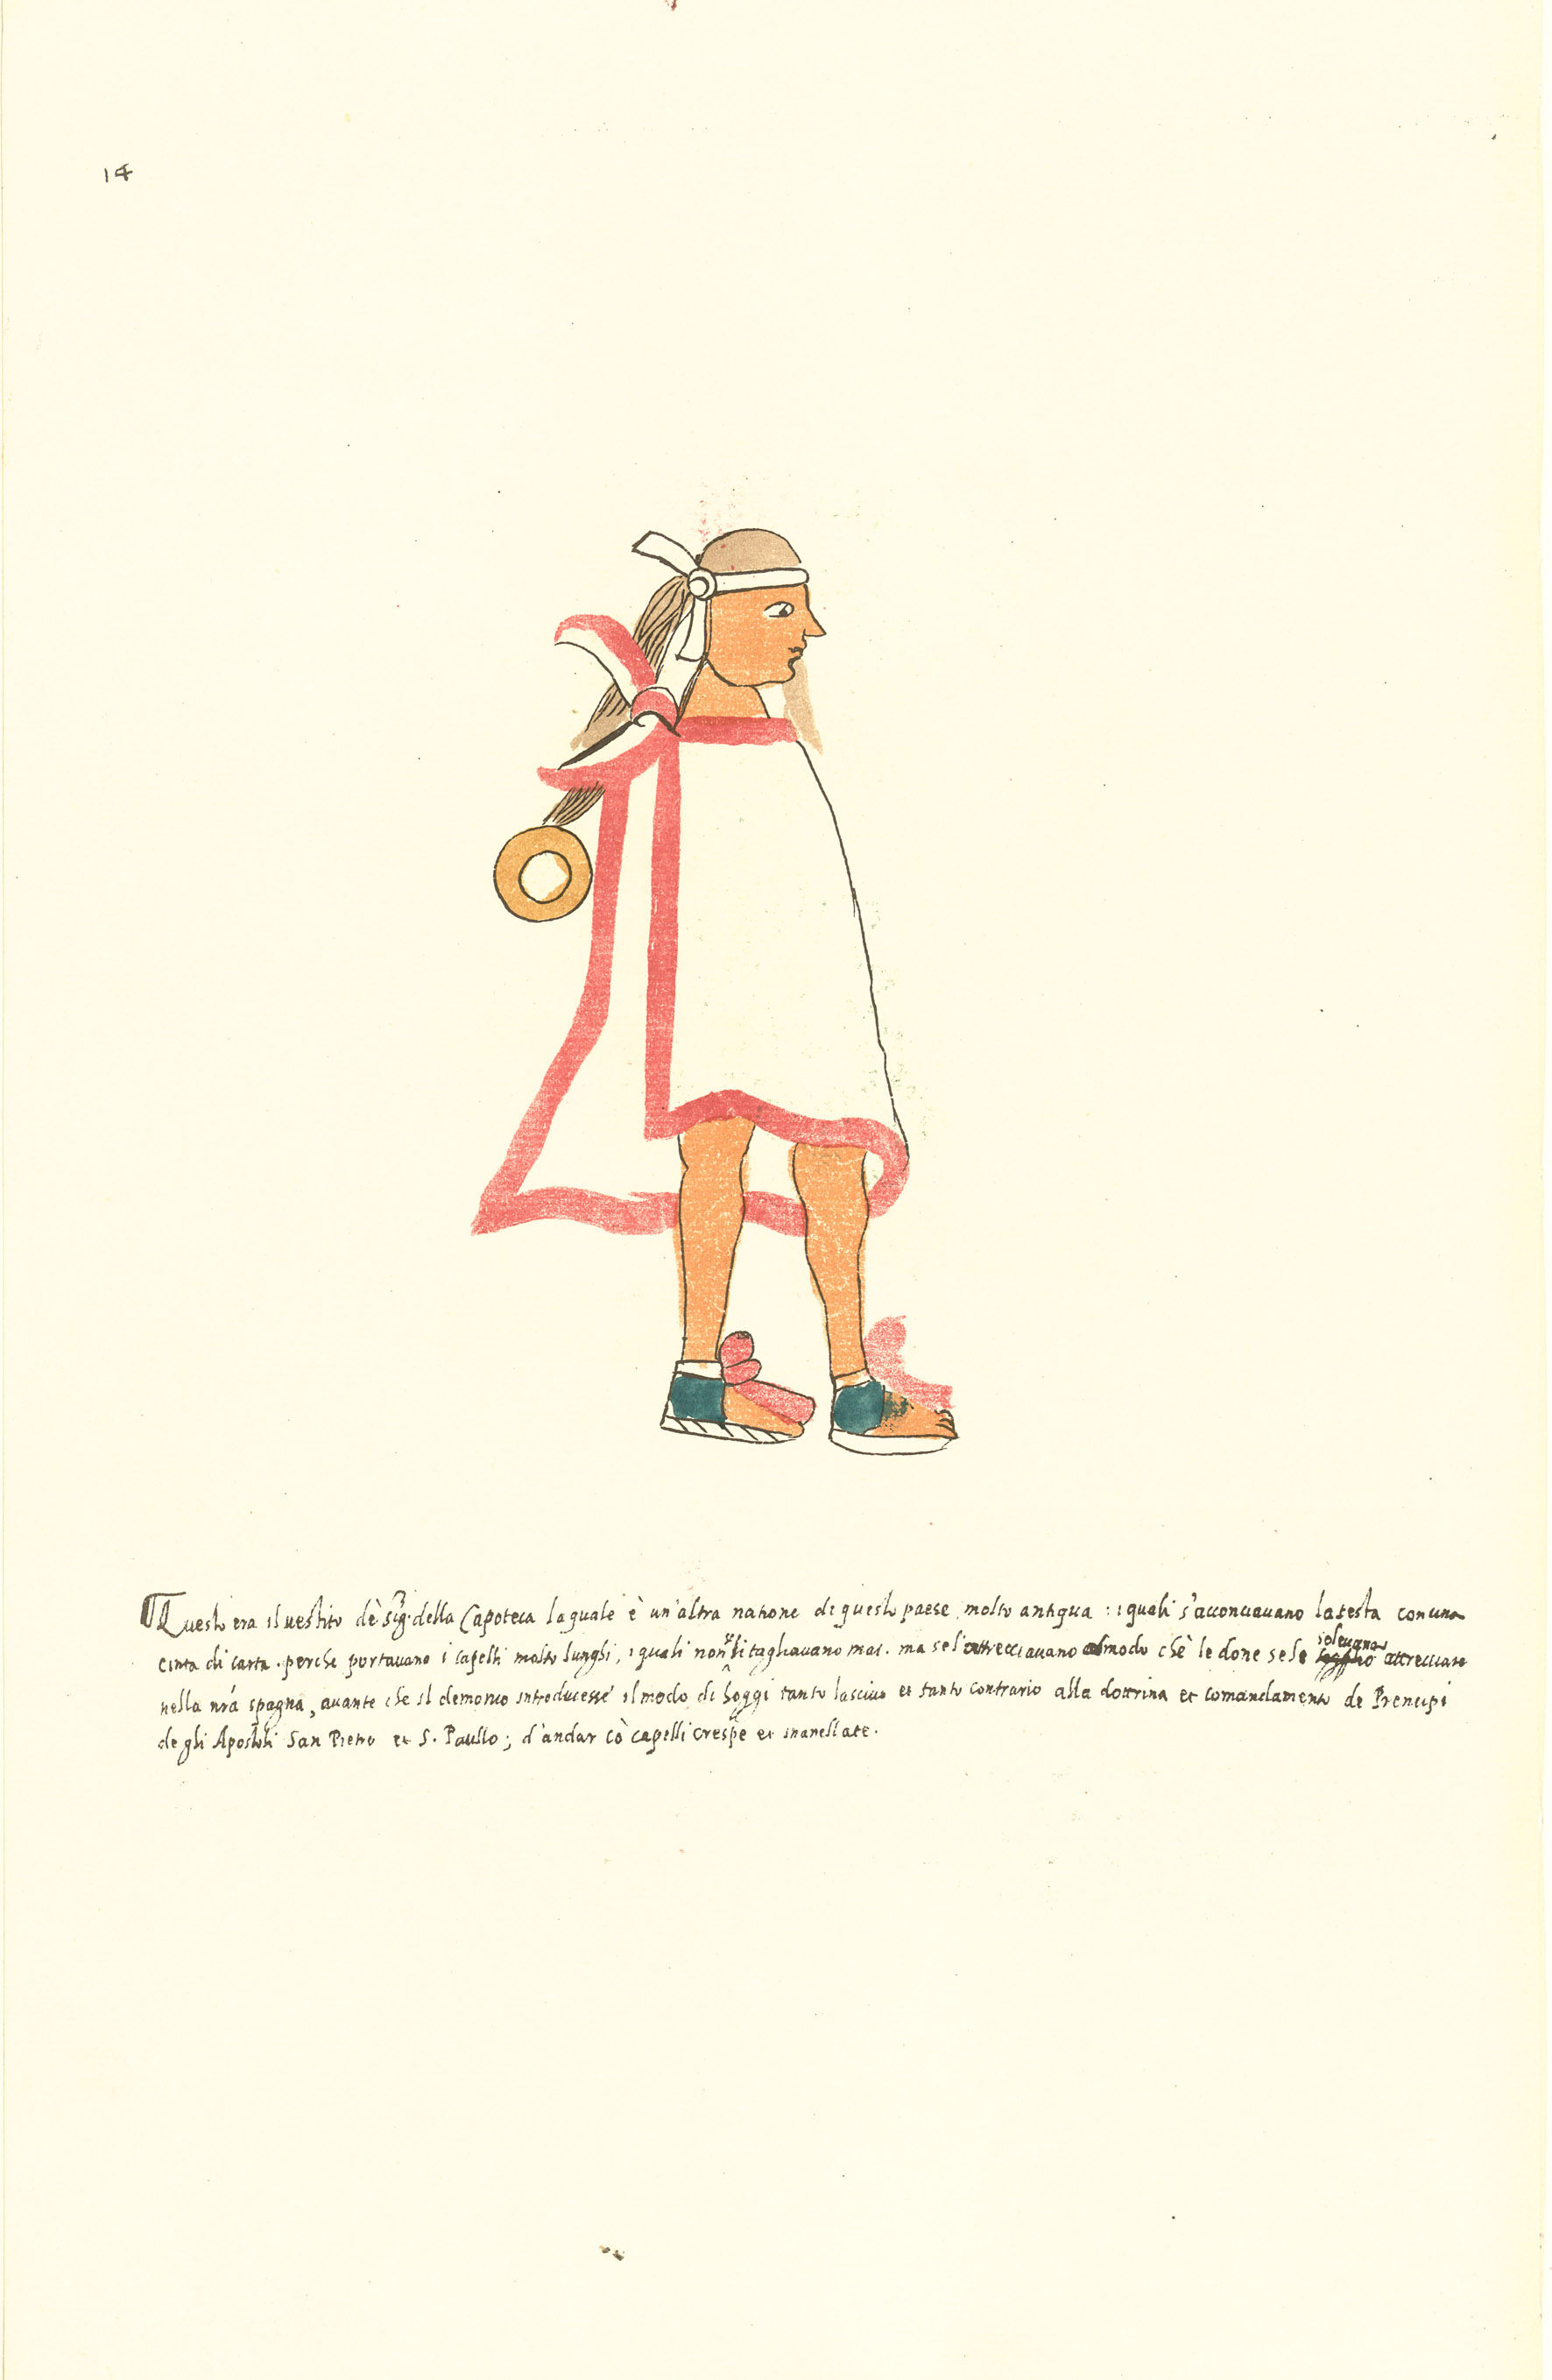 14
Questo era il uestito dè Sig.ri della Capoteca laquale è un'altra natione di questo paese molto antiqua : i quali s'acconciauano la testa con una
cinta di carta . perche portauano i capelli molto lunghi, i quali non se li tagliauano mai. ma se l'intrecciauano al modo chè le done se le soleuano attrecciare
nella nrá spagna, auante che il demonio introducesse il modo di hoggi tanto lasciuo et tanto contrario alla dottrina et comandamento de Prencipi
de gli Apostoli San Pietro et S. Paullo ; d'andar cò capelli crespe et inanellate.